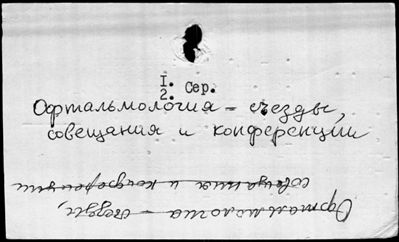 1.
2. Сер.
Офтальмология - съезды,
совещания и конференции
Офтальмология - съезды,
совещания и конференции